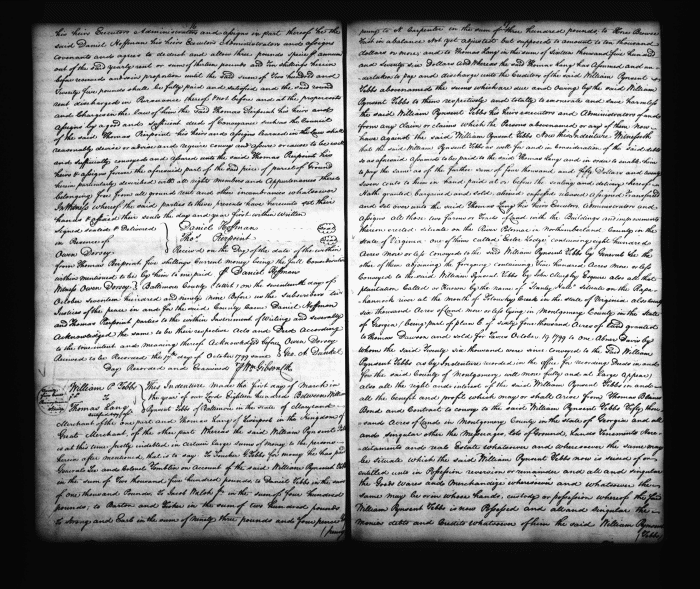 his heirs Executors Administrators and assigns in part thereof he the
said Daniel Hoffman his heirs Executors Administrators and assigns
covenants and agrees to deduct and allow three pounds specie annum
out of the said yearly rent or sum of thirteen pounds and ten shillings herein
before reserved and in proportion until the said sum of two hundred and
Twenty five pounds shall be fully paid and satisfied and the said ground
rent discharged in Pursuance thereof And before and at the proper costs
and Charges in the law of him the said Thomas Pierpoint his heirs and
Assigns by a good and sufficient deed of Conveyance such as the Council
of the said Thomas Pierpoint his heirs and assigns learned in the Law shall
reasonably devise or advise and require convey and assure or cause to be well
and sufficiently conveyed and assured unto the said Thomas Pierpoint his
heirs & assigns forever the aforesaid part of the said piece or parcel of Ground
herein particularly described with all rights members and Appurtenances thereto
belonging free from all ground rent and other incumbrances whatsoever
In Witness whereof the said parties to these presents have hereunto set their
hands & affixed their seals the day and year first within Written
Signed sealed & Delivered } Daniel Hoffman
in Presence of } Thos Pierpoint
Owen Dorsey } Received on the Day of the date of the within
from Thomas Pierpoint five shillings Current money being the full Consideration
within mentioned to be by them to me paid Daniel Hoffman
Witness Owen Dorsey } Baltimore County to wit, on the seventeenth day of
October seventeen hundred and ninety nine Before us the subscribers two
Justices of the peace in and for the said County Came Daniel Hoffman
and Thomas Pierpoint parties to the within Instrument of Writing and severally
Acknowledged the same to be their respective Acts and Deed According
to the true intent and meaning thereof Acknowledged before Owen Dorsey
Received to be Recorded the 17th day of October 1799 Geo. A Dunkel
Day Recorded and Examined Wm Gibson Clk
William P Tebbs } This Indenture made the first day of March in
to } the year of our Lord Eighteen hundred Between William
Thomas Lang } Pynsent Tebbs of Baltimore in the state of Maryland
Merchant of the one part and Thomas Lang of Liverpool in the Kingdom of
Great Merchant, of the other part Whereas the said William Pynsent Tebbs
is at this time justly indebted in certain large sums of money to the persons
herein after mentioned, that is to say To Foushee G Tebbs for money he has paid
General Lee and Colonel Pendleton on Account of the said William Pynsent Tebbs
in the sum of Two thousand five hundred pounds to Daniel Tebbs in the sum
of one thousand Pounds, To Jacob Welsh in the sum of four hundred
pounds, to Barton and Fisher in the sum of two hundred pounds
to Strong and Earle in the sum of Ninety three pounds and four pence
pence to A Carpenter in the sum of Three hundred pounds, to Three Brewer
Fish in abalance Not yet ajusted but supposed to amount to ten thousand
dollars or more and to Thomas Lang in the sum of sixteen thousand five hundred
and Twenty six Dollars And Whereas the said Thomas Lang has Assumed and un-
dertaken to pay and discharge unto the Creditors of the said William Pynsent
Tebbs abovenamed the sums which are due and Owing by the said William
Pynsent Tebbs to them respectively and totally to exonerate and save harmless
the said William Pynsent Tebbs his heirs executors and Administrators of and
from any claim or claims which the Persons abovenamed or any of them Now
have against the said William Pynsent Tebbs Now this Indenture Witnesseth
that the said William Pynsent Tebbs as well for and in Consideration of the said debts
so as aforesaid Assumed to be paid to the said Thomas Lang and in order to enable him
to pay the same as of the further sum of four thousand and fifty Dollars and twenty
seven cents to him in hand paid at or before the sealing and delivery hereof
Hath granted bargained and sold aliened enfeoffed released Assigned Transferred
and set over unto the said Thomas Lang his heirs Executors Administrators and
Assigns All those two farms or Tracts of Land with the Buildings and improvements
thereon erected situate on the River Potomac in Northumberland County in the
State of Virginia one of them called Exeter Lodge containing eight hundred
Acres more or less conveyed to the said William Pynsent Tebbs by Gravat Lee the
other of them adjoining the foregoing containing Five hundred Acres more or less
Conveyed to the said William Pynsent Tebbs by John Murphy Esquire also all that
plantation Called or Known by the name of Nanty Nale situate on the Rapa-
hannock river at the mouth of Creek in the state of Virginia also twenty
six thousand Acres of Land now or late lying in Montgomery County in the State
of Georgia (being part of plan B of sixty four thousand Acres of Land granted
to Thomas Dawson and sold for Taxes October 17 1794 to one Abner Davis by
whom the said Twenty six thousand were conveyed to the said William
Pynsent Tebbs as by Indenture recorded in the Office for recording Deeds in and
for the said County of Montgomery, will more fully and at Large Appear
also all the right and interest of the said William Pynsent Tebbs in and
all the benefit and profit which may or shall Arise from Thomas Blair's
Bond and Contract to convey to the said William Pynsent Tebbs Fifty thou-
sand Acres of Land in Montgomery County in the state of Georgia and all
and singular other the Messuages, lots of Ground, Lands Tenements Here-
ditaments and real Estate whatsoever and wheresoever the same may
be situate which the said William Pynsent Tebbs now is seized of or
entitled unto in Possession reversion or remainder and all and singular
the Goods Wares and Merchandize wheresoever and whatsoever the
same may be in or whose hands, custody or possession whereof the said
William Pynsent Tebbs is now Possessed and all and singular the
Monies debts and Credits whatsoever of him the said William Pynsent
Tebbs